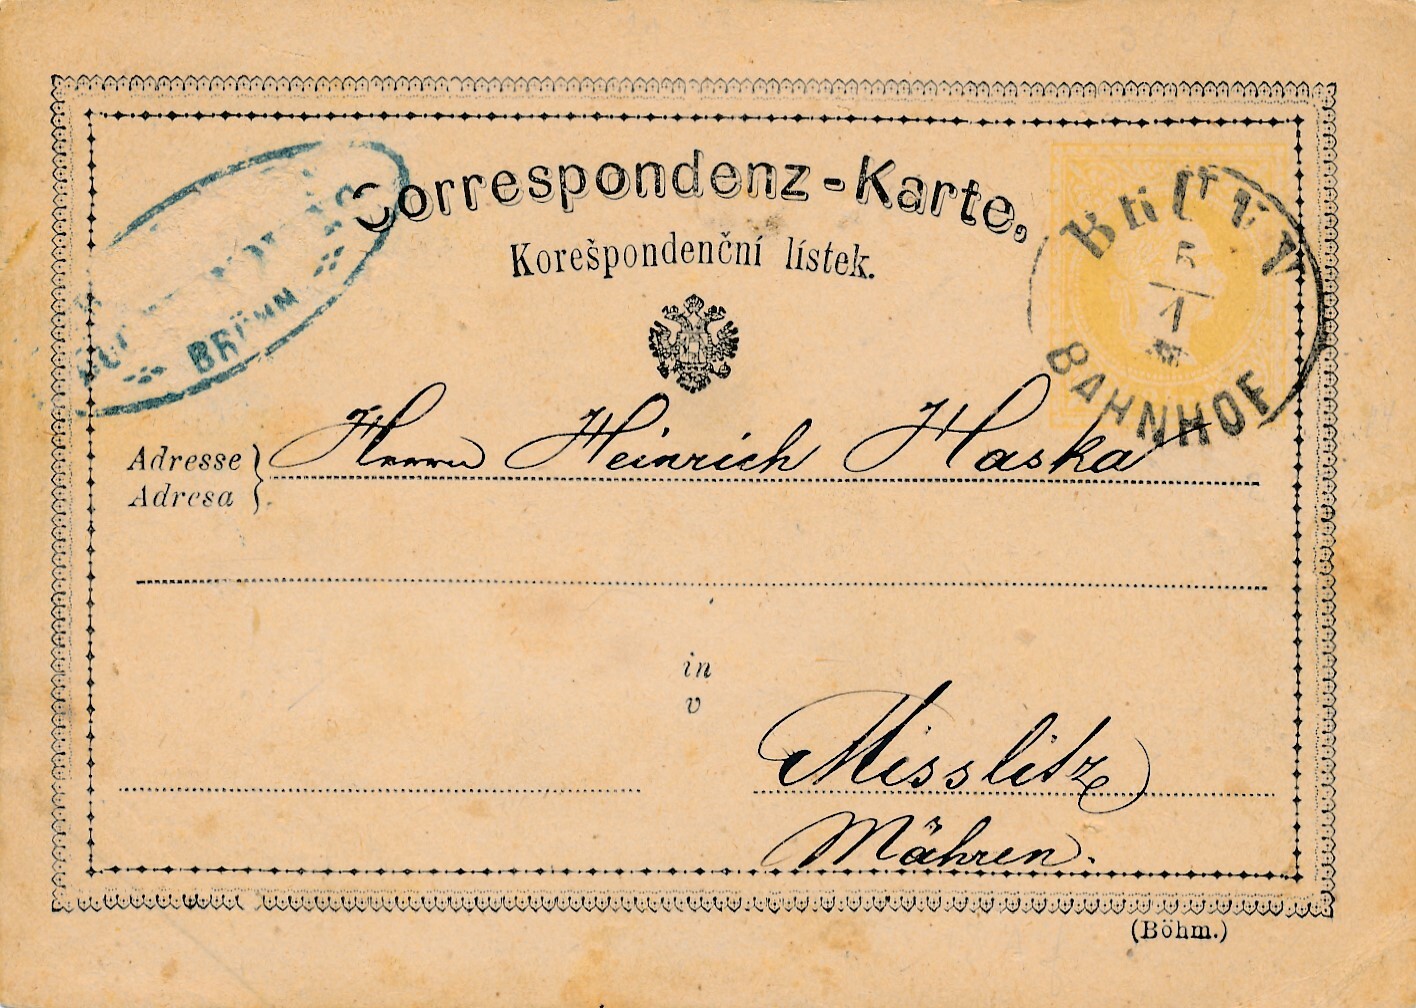 Correspondenz-Karte,
Korešpondenční lístek.
BRÜNN
5
1
BAHNHOF
BRÜNN
Adresse
Adresa
Herrn Heinrich Haska
in
v
Misslitz
Mähren.
(Böhm.)